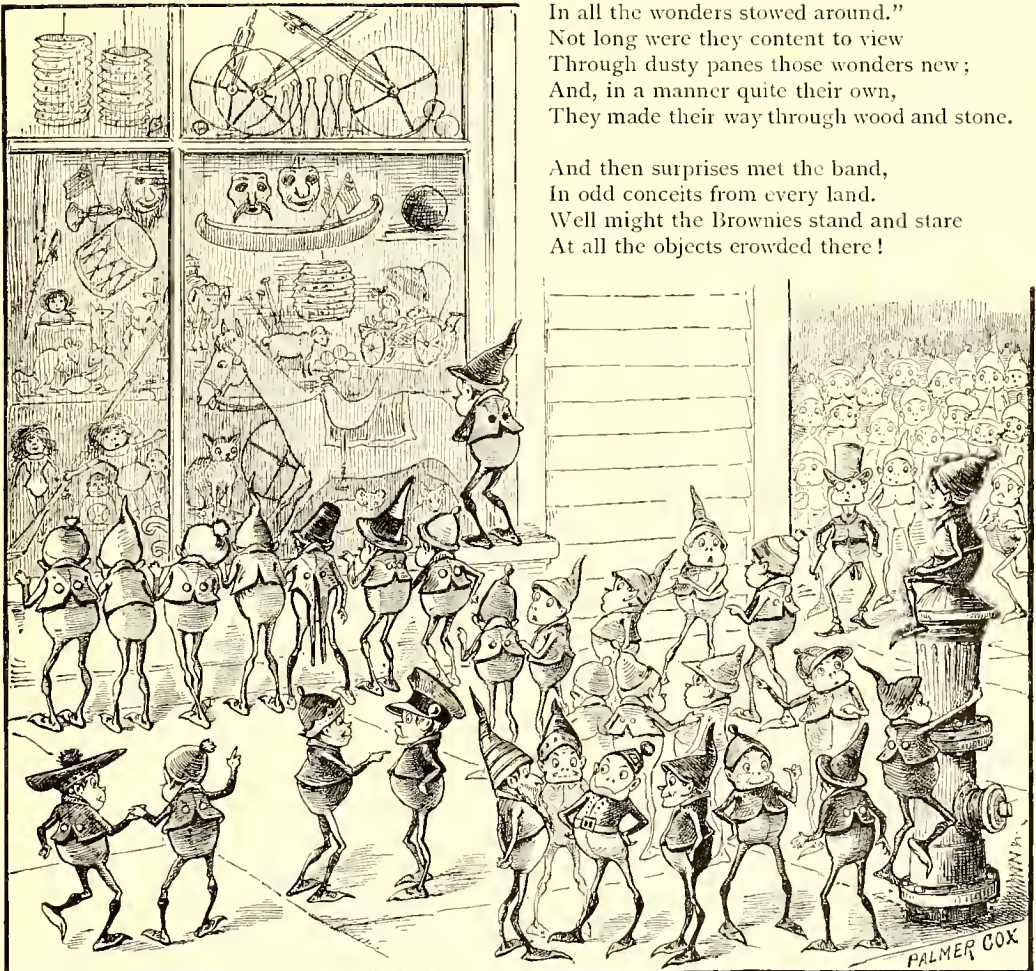 In all the wonders stowed around.”
Not long were they content to view
Through dusty panes those wonders new;
And, in a manner quite their own,
They made their way through wood and stone.
And then surprises met the band,
In odd conceits from every land.
Well might the Brownies stand and stare
At all the objects crowded there!
PALMER COX